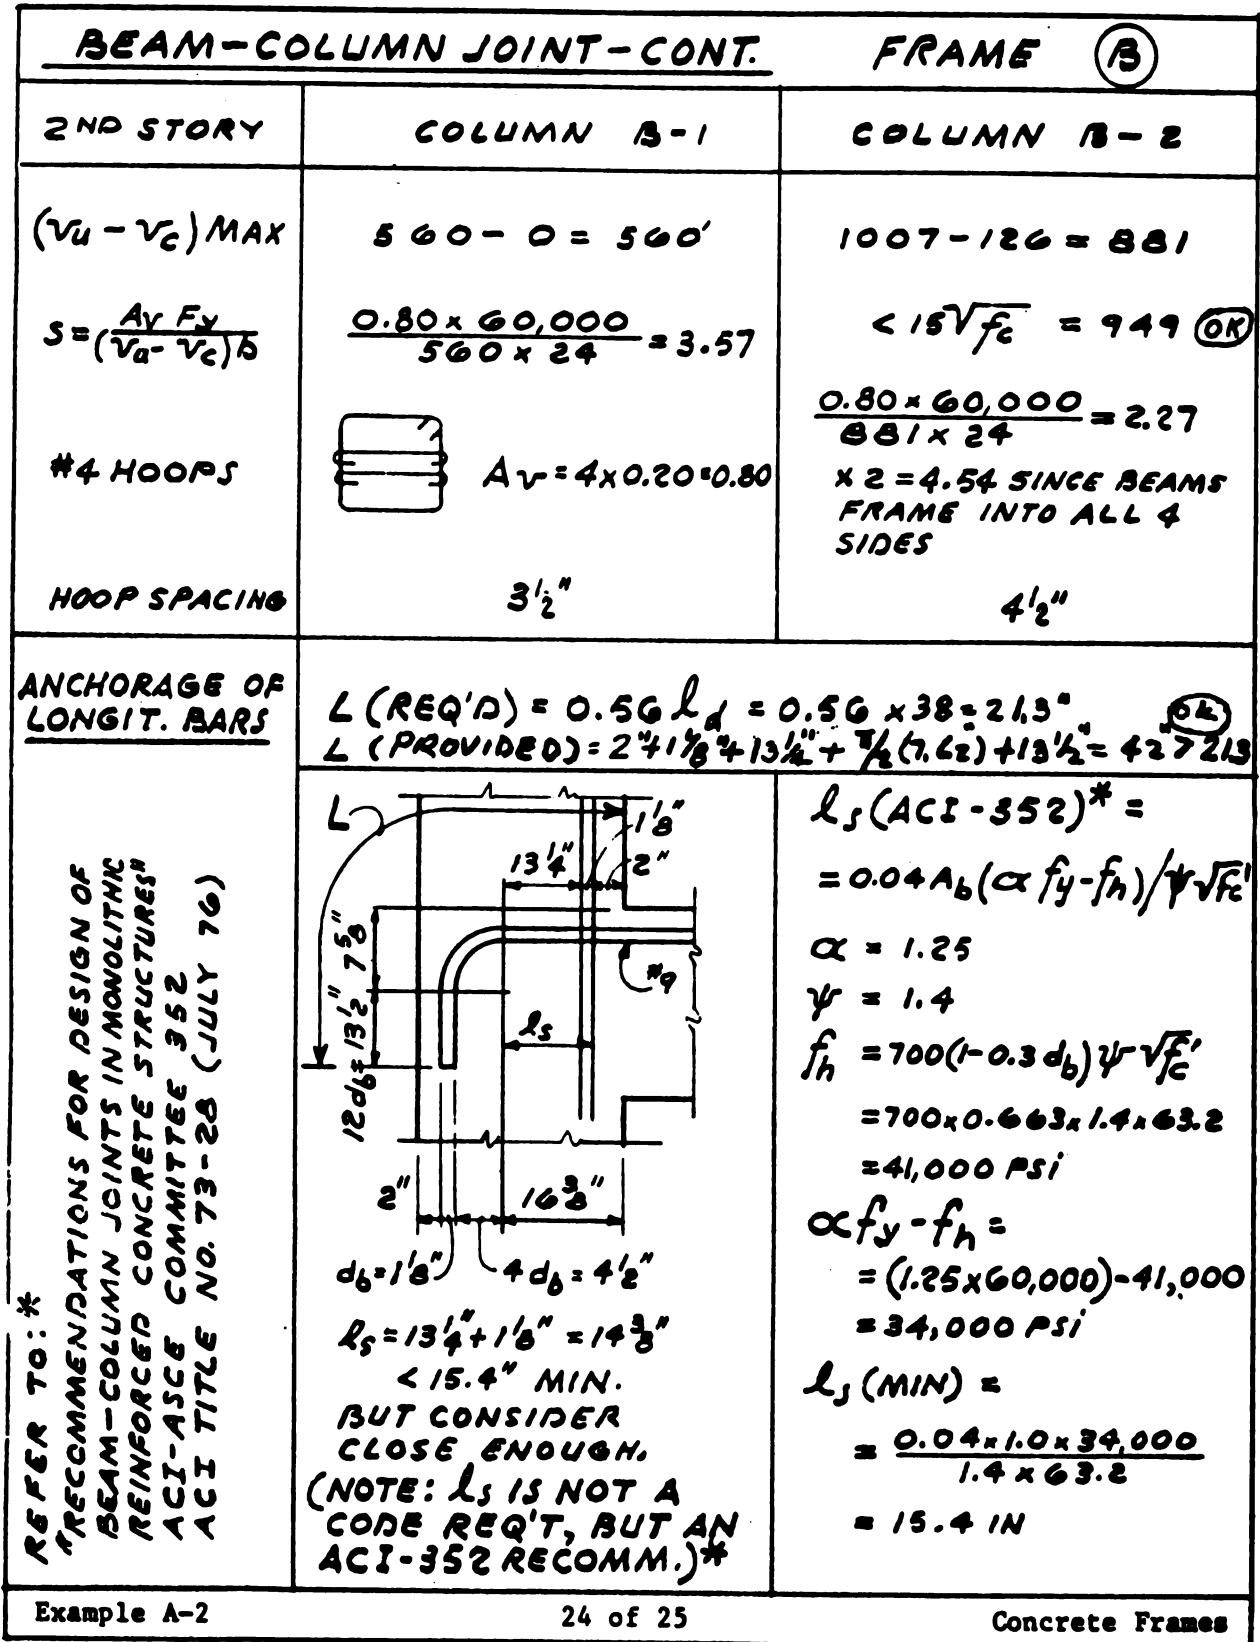 BEAM-COLUMN JOINT-CONT. FRAME B
2ND STORY COLUMN B-1 COLUMN B-2
(vu - vc) MAX 560 - 0 = 560' 1007 - 126 = 881
S = Av Fy / (va - vc) b 0.80 x 60,000 / 560 x 24 = 3.57 < 15√fc = 949 OK
0.80 x 60,000 / 881 x 24 = 2.27
#4 HOOPS Av = 4 x 0.20 = 0.80 x 2 = 4.54 SINCE BEAMS
FRAME INTO ALL 4
SIDES
HOOP SPACING 3 1/2" 4 1/2"
ANCHORAGE OF
LONGIT. BARS
L (REQ'D) = 0.56 ld = 0.56 x 38 = 21.3" ok
L (PROVIDED) = 2" + 1 1/8" + 13 1/4" + π/2 (7.62) + 13 1/2" = 42" > 21.3
REFER TO: *
"RECOMMENDATIONS FOR DESIGN OF
BEAM-COLUMN JOINTS IN MONOLITHIC
REINFORCED CONCRETE STRUCTURES"
ACI-ASCE COMMITTEE 352
ACI TITLE NO. 73-28 (JULY 76)
L
1 1/8"
13 1/4" 2"
7 5/8"
#9
12db = 13 1/2"
ls
2" 16 3/8"
db = 1 1/8" 4 db = 4 1/2"
ls = 13 1/4" + 1 1/8" = 14 3/8"
< 15.4" MIN.
BUT CONSIDER
CLOSE ENOUGH.
(NOTE: ls IS NOT A
CODE REQ'T, BUT AN
ACI-352 RECOMM.)*
ls (ACI-352)* =
= 0.04 Ab (α fy - fh) / ψ √fc'
α = 1.25
ψ = 1.4
fh = 700 (1 - 0.3 db) ψ √fc'
= 700 x 0.663 x 1.4 x 63.2
= 41,000 PSi
α fy - fh =
= (1.25 x 60,000) - 41,000
= 34,000 PSi
ls (MIN) =
= 0.04 x 1.0 x 34,000 / 1.4 x 63.2
= 15.4 IN
Example A-2 24 of 25 Concrete Frames